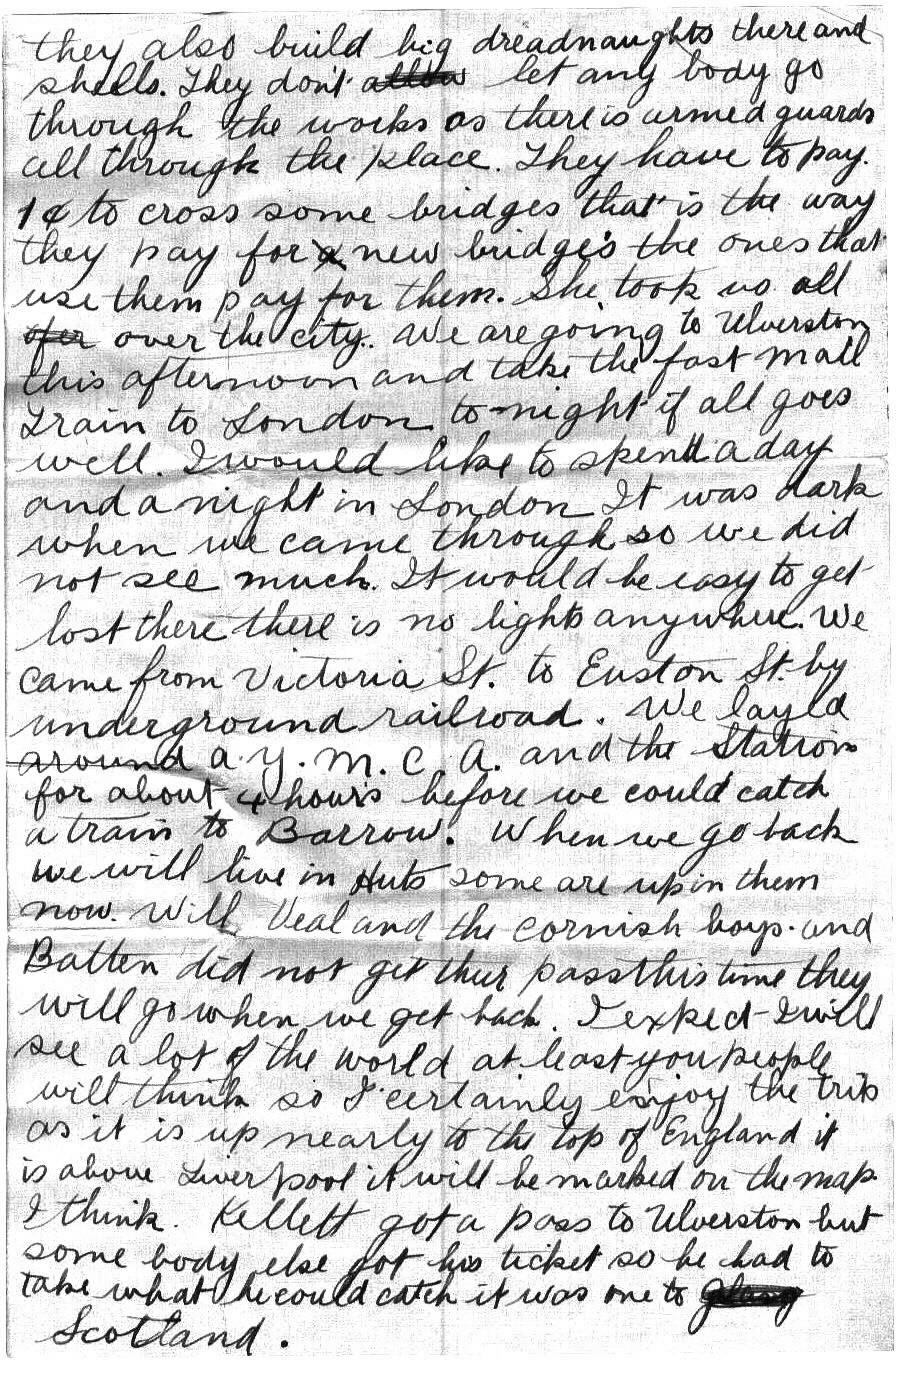 they also build big dreadnaughts there and
shells. They don't allow let any body go
through the works as there is armed guards
all through the place. They have to pay.
1¢ to cross some bridges that is the way
they pay for a new bridges the ones that
use them pay for them. She took us all
ofer over the city. We are going to Ulverston
this afternoon and take the fast mail
Train to London to-night if all goes
well. I would like to spend a day
and a night in London It was dark
when we came through so we did
not see much. It would be easy to get
lost there there is no lights anywhere. We
came from Victoria St. to Euston St. by
underground railroad. We layed
around a Y. M. C. A. and the Station
for about 4 hours before we could catch
a train to Barrow. When we go back
we will live in Huts some are up in them
now. Will Veal and the cornish boys and
Batten did not get their pass this time they
will go when we get back. I expect I will
see a lot of the world at least you people
will think so I certainly enjoy the trip
as it is up nearly to the top of England it
is above Liverpool it will be marked on the map
I think. Kellett got a pass to Ulverston but
some body else got his ticket so he had to
take what he could catch it was one to
Scotland.